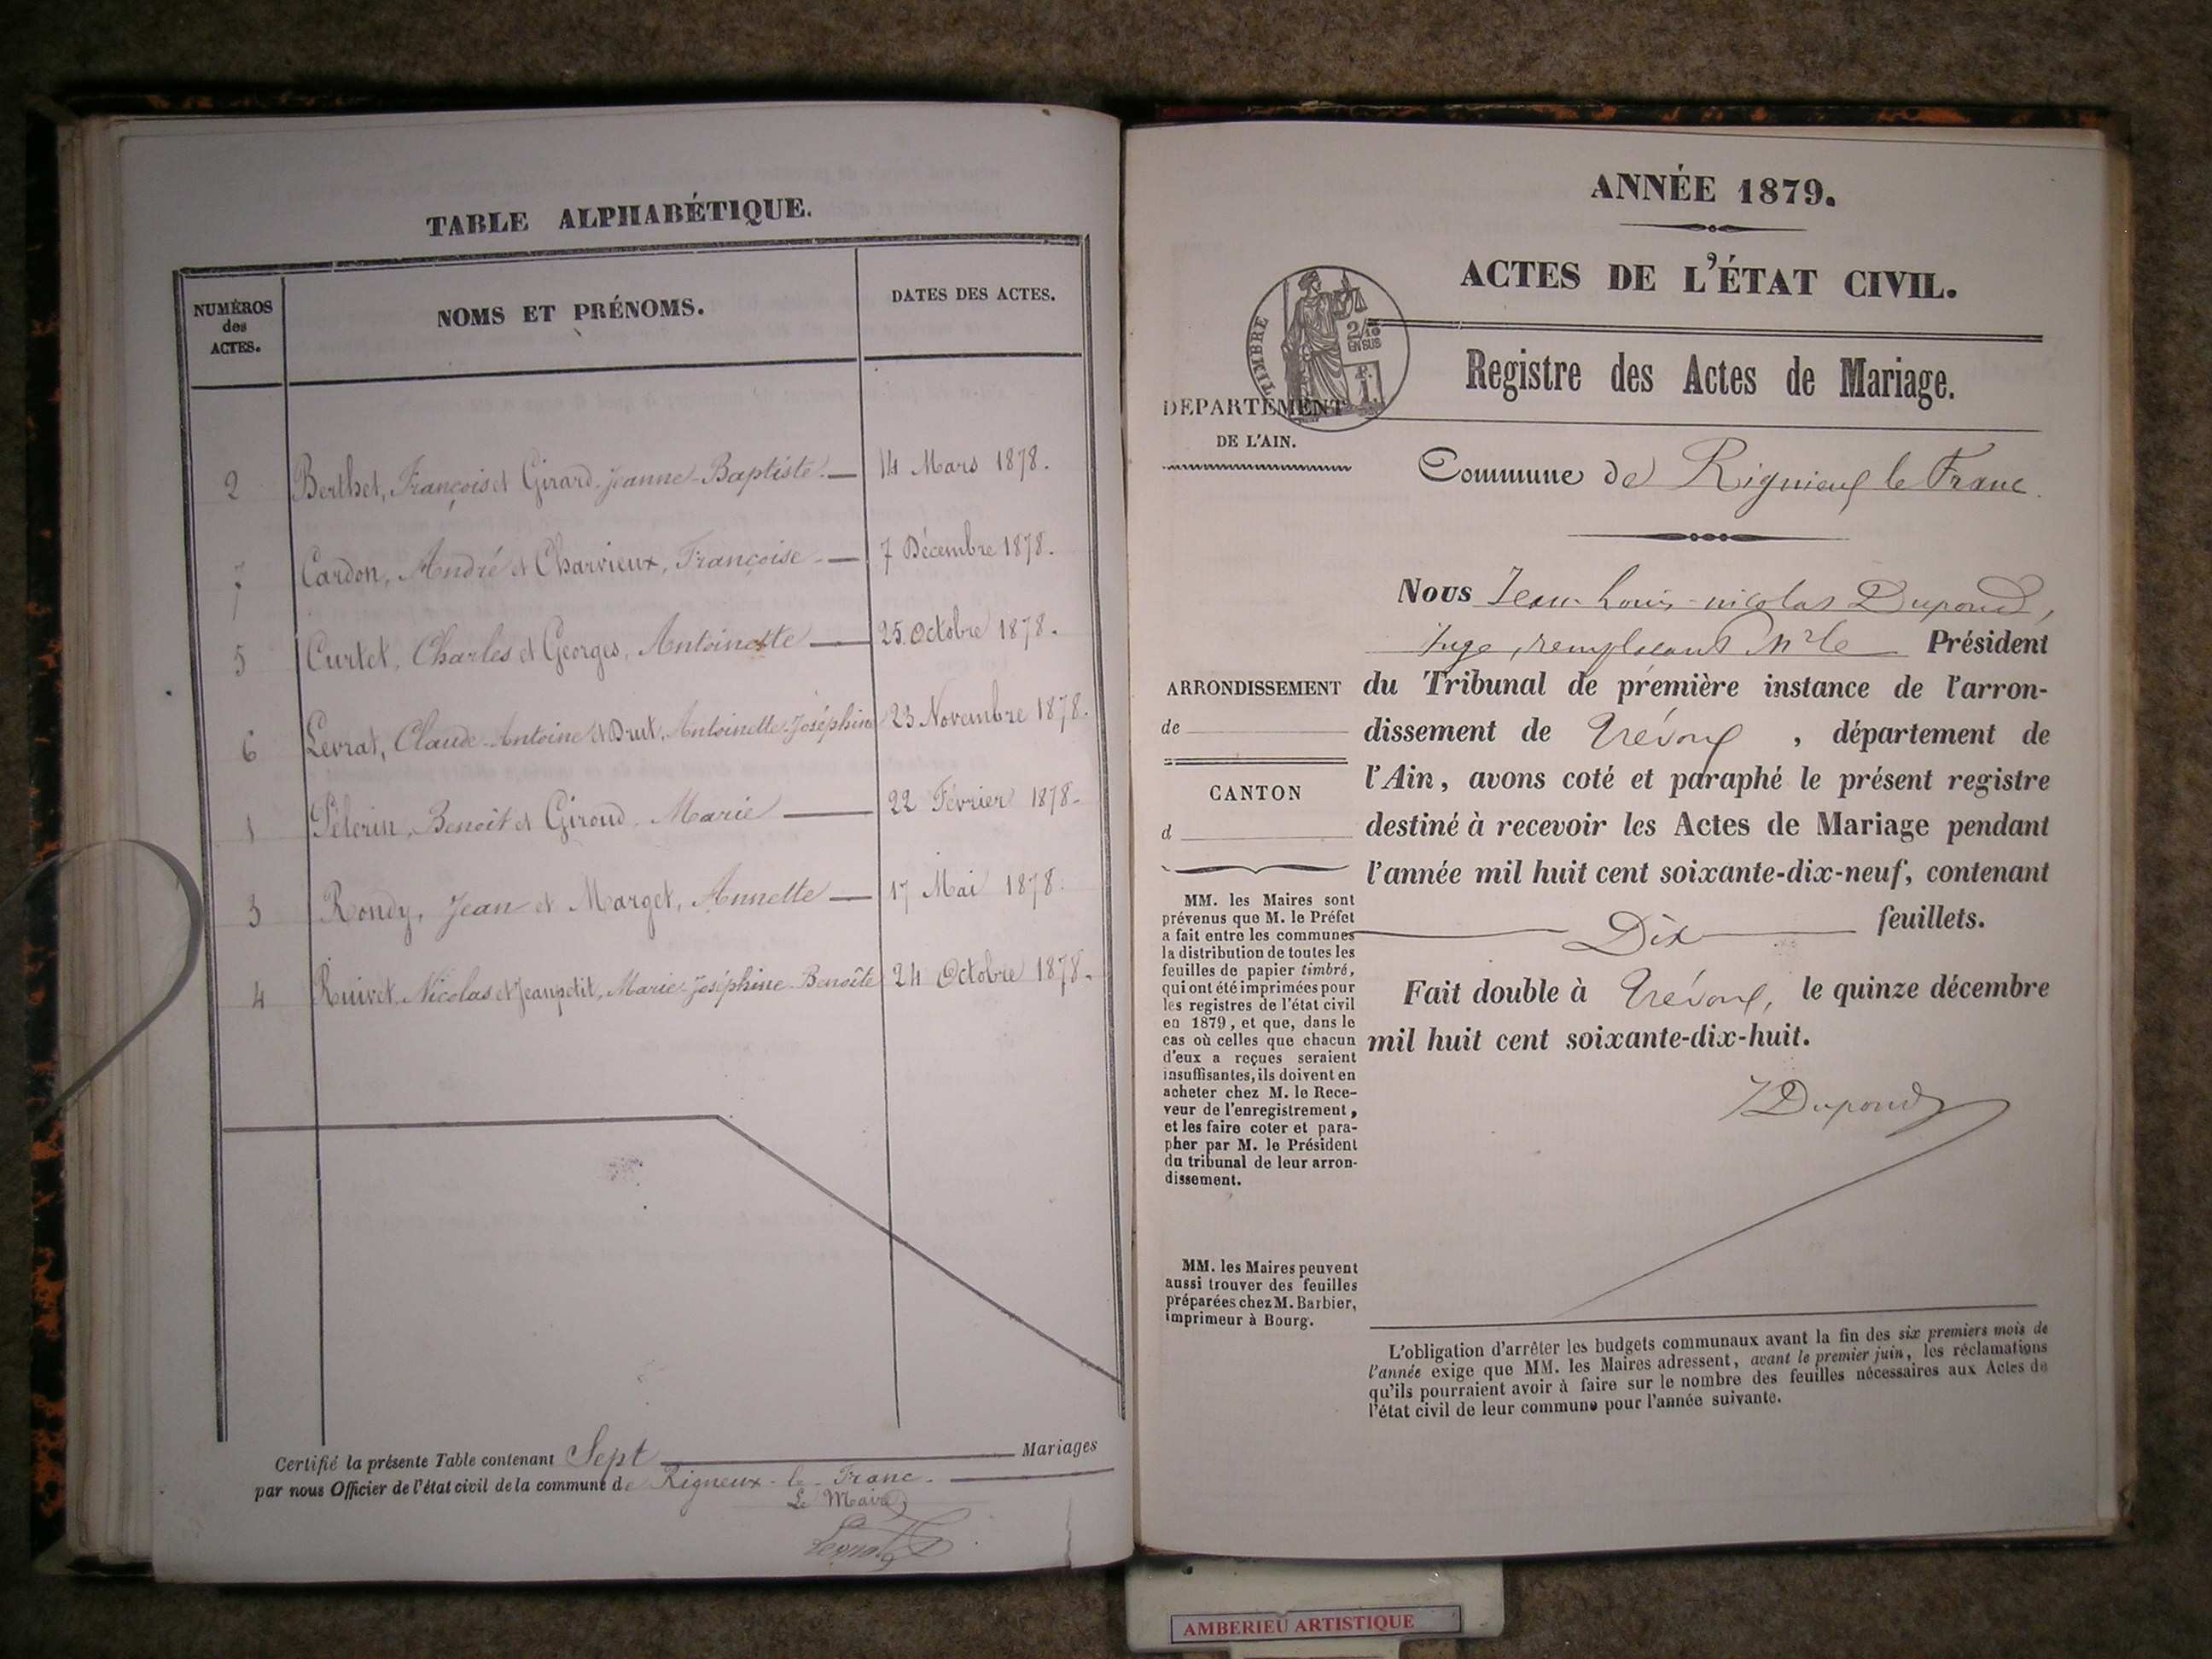 TABLE ALPHABÉTIQUE.
NUMÉROS
des
ACTES.
NOMS ET PRÉNOMS.
DATES DES ACTES.
2 Berthet, François et Girard, Jeanne-Baptiste. — 14 Mars 1878.
7 Cardon, André et Charvieux, Françoise — 7 Décembre 1878.
5 Curtet, Charles et Georges, Antoinette — 25 Octobre 1878.
6 Levrat, Claude-Antoine et Brut, Antoinette-Joséphine 23 Novembre 1878.
1 Pélerin, Benoit et Giroud, Marie — 22 Février 1878.
3 Rondy, Jean et Marget, Annette — 17 Mai 1878.
4 Ruivet, Nicolas et Jeanpetit, Marie-Joséphine-Benoîte 24 Octobre 1878.
Certifié la présente Table contenant Sept — Mariages
par nous Officier de l'état civil de la commune de Rigneux-le-Franc.
Le Maire
Levrat
ANNÉE 1879.
ACTES DE L'ÉTAT CIVIL.
TIMBRE
2/10
EN SUS
F.
1
Registre des Actes de Mariage.
DÉPARTEMENT
DE L'AIN.
Commune de Rignieux le Franc.
Nous Jean-Louis-nicolas Dupond,
Juge, remplaçant Mr le Président
ARRONDISSEMENT
de
CANTON
d
du Tribunal de première instance de l'arron-
dissement de Trévoux, département de
l'Ain, avons coté et paraphé le présent registre
destiné à recevoir les Actes de Mariage pendant
l'année mil huit cent soixante-dix-neuf, contenant
Dix feuillets.
Fait double à Trévoux, le quinze décembre
mil huit cent soixante-dix-huit.
Dupond
MM. les Maires sont
prévenus que M. le Préfet
a fait entre les communes
la distribution de toutes les
feuilles de papier timbré,
qui ont été imprimées pour
les registres de l'état civil
en 1879, et que, dans le
cas où celles que chacun
d'eux a reçues seraient
insuffisantes, ils doivent en
acheter chez M. le Rece-
veur de l'enregistrement,
et les faire coter et para-
pher par M. le Président
du tribunal de leur arron-
dissement.
MM. les Maires peuvent
aussi trouver des feuilles
préparées chez M. Barbier,
imprimeur à Bourg.
L'obligation d'arrêter les budgets communaux avant la fin des six premiers mois de
l'année exige que MM. les Maires adressent, avant le premier juin, les réclamations
qu'ils pourraient avoir à faire sur le nombre des feuilles nécessaires aux Actes de
l'état civil de leur commune pour l'année suivante.
AMBERIEU ARTISTIQUE